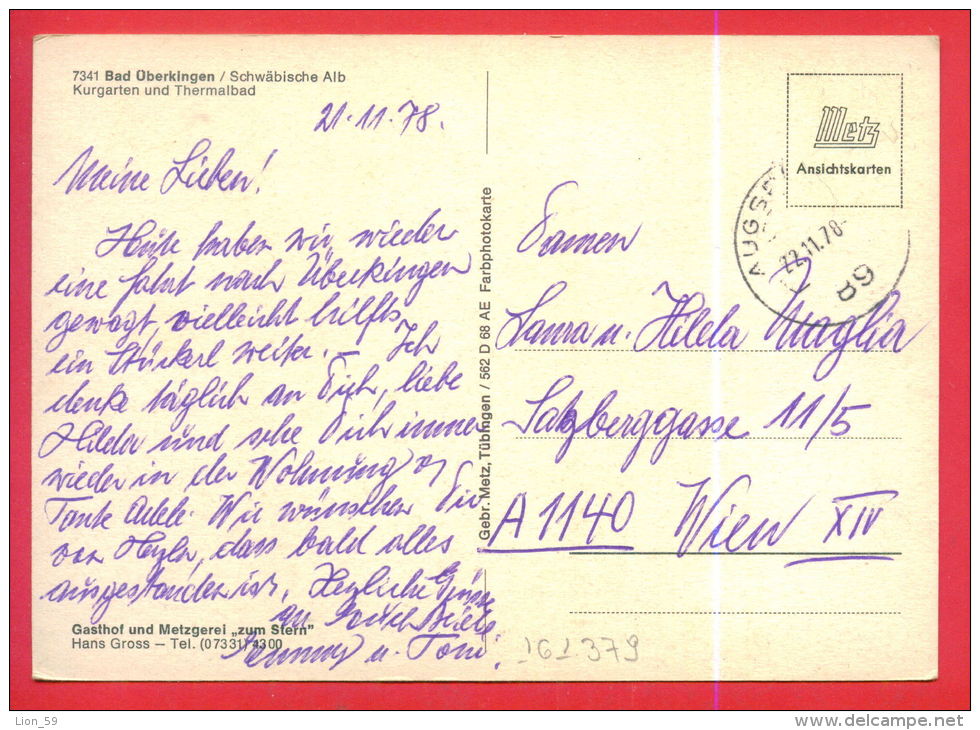 7341 Bad Überkingen / Schwäbische Alb
Kurgarten und Thermalbad
21.11.78.
Meine Lieben!
Heute haben wir wieder
eine Fahrt nach Überkingen
gewagt, vielleicht hilfts
ein Stückerl weiter. – Ich
denke täglich an Dich, liebe
Hilda und sehe Dich immer
wieder in der Wohnung v.
Tante Adele. Wir wünschen Dir
von Herzen, dass bald alles
ausgestanden ist. Herzliche Grüsse
an Euch Beide
u. Toni.
Gasthof und Metzgerei „zum Stern"
Hans Gross – Tel. (07331) 4300
Gebr. Metz, Tübingen / 562 D 68 AE Farbphotokarte
Metz
Ansichtskarten
AUGSB
22.11.78-
89
Damen
Laura u. Hilda Maglia
Salzberggasse 11/5
A 1140 Wien XIV
161379
Lion_59
www.delcampe.net